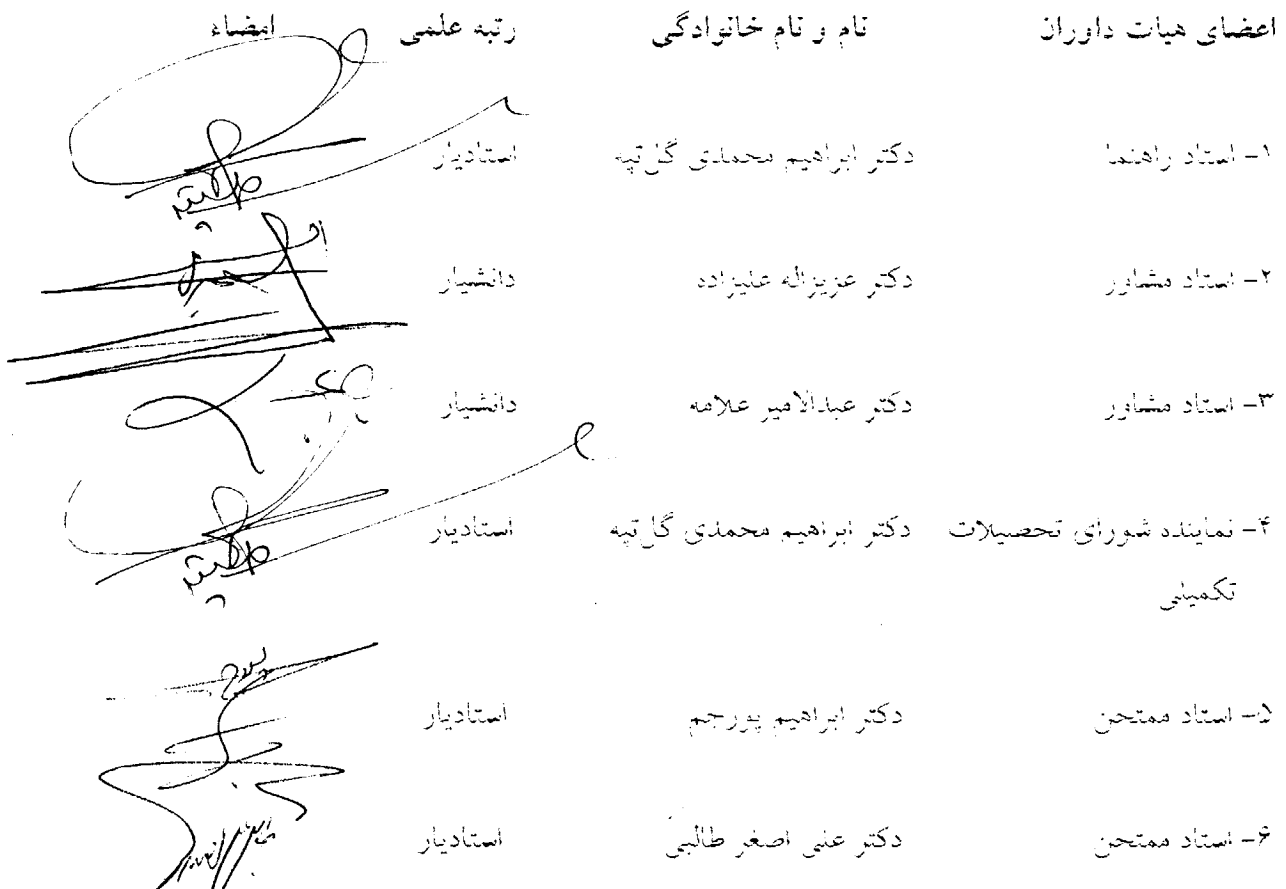 اعضای هیات داوران نام و نام خانوادگی رتبه علمی امضاء
۱- استاد راهنما دکتر ابراهیم محمدی گل‌تپه استادیار
۲- استاد مشاور دکتر عزیزاله علیزاده دانشیار
۳- استاد مشاور دکتر عبدالامیر علامه دانشیار
۴- نماینده شورای تحصیلات دکتر ابراهیم محمدی گل‌تپه استادیار
تکمیلی
۵- استاد ممتحن دکتر ابراهیم پورجم استادیار
۶- استاد ممتحن دکتر علی اصغر طالبی استادیار